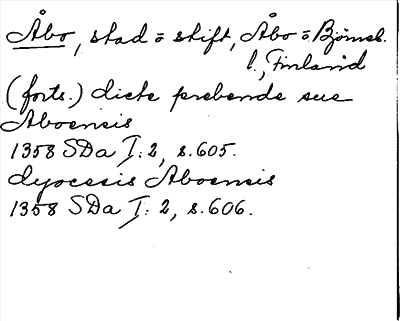 Åbo, stad o stift, Åbo o Björneb.
l., Finland
(forts.) dicte prebende sue
Aboensis
1358 SDa I: 2, s. 605.
dyocesis Aboensis
1358 SDa I: 2, s. 606.